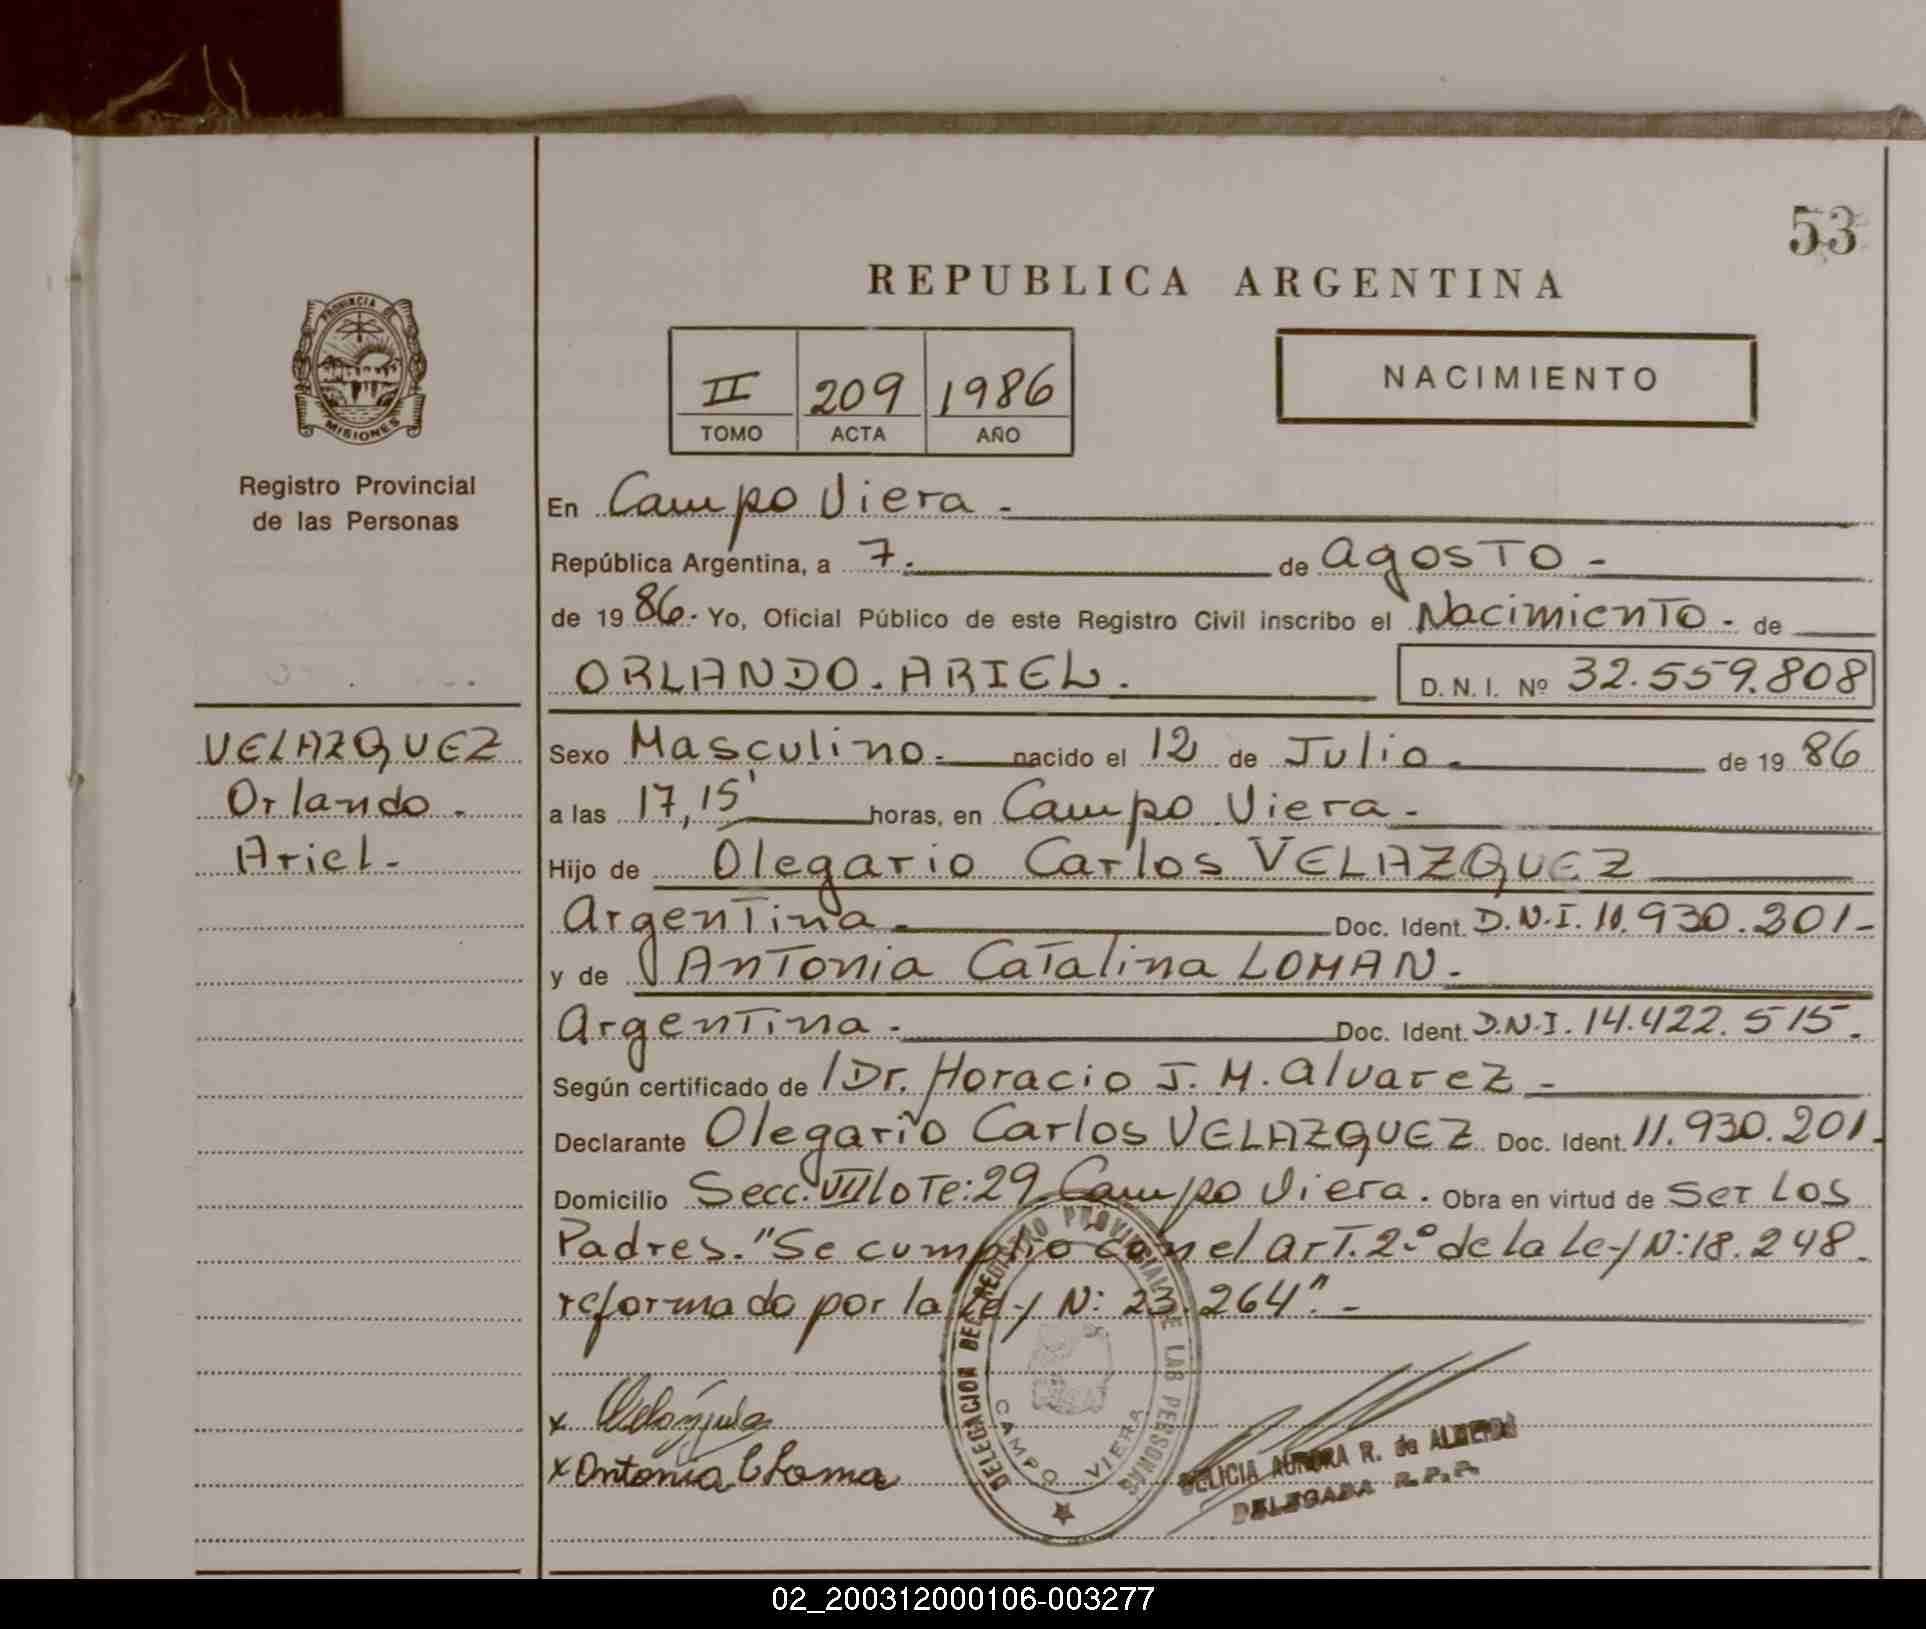 53
REPUBLICA ARGENTINA
PROVINCIA DE
MISIONES
II 209 1986
TOMO ACTA AÑO
NACIMIENTO
Registro Provincial
de las Personas
En Campo Viera.
República Argentina, a 7. de Agosto.
de 1986. Yo, Oficial Público de este Registro Civil inscribo el Nacimiento. de
ORLANDO. ARIEL. D. N. I. Nº 32.559.808
VELAZQUEZ
Orlando.
Ariel.
Sexo Masculino. nacido el 12 de Julio. de 1986
a las 17,15' horas, en Campo Viera.
Hijo de Olegario Carlos VELAZQUEZ
Argentina. Doc. Ident. D.N.I. 11.930.201-
y de Antonia Catalina LOMAN.
Argentina. Doc. Ident. D.N.I. 14.422.515.
Según certificado de Dr. Horacio J. M. Alvarez.
Declarante Olegario Carlos VELAZQUEZ Doc. Ident. 11.930.201.
Domicilio Secc. VII Lote: 29. Campo Viera. Obra en virtud de ser los
Padres. "Se cumplio con el art. 2º de la Ley N: 18.248.
reformado por la Ley N: 23.264".
DELEGACION DEL REGISTRO PROVINCIAL DE LAS PERSONAS
CAMPO VIERA
x
x Antonia C Loman
AURORA R. de ALMEIDA
DELEGADA R.P.P.
02_200312000106-003277